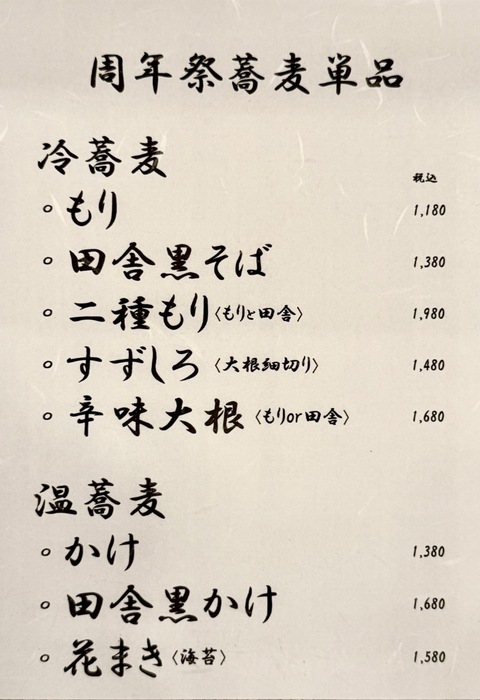 周年祭蕎麦単品
冷蕎麦
税込
○ もり 1,180
○ 田舎黒そば 1,380
○ 二種もり〈もりと田舎〉 1,980
○ すずしろ〈大根細切り〉 1,480
○ 辛味大根〈もりor田舎〉 1,680
温蕎麦
○ かけ 1,380
○ 田舎黒かけ 1,680
○ 花まき〈海苔〉 1,580